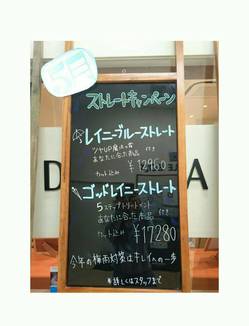 ストレートキャンペーン
レイニーブルーストレート
ツヤUP魔法の水
あなたに合った商品 付き
カット込み ¥12960
ゴッドレイニーストレート
5ステップトリートメント
あなたに合った商品 付き
カット込み ¥17280
今年の梅雨対策はキレイへの一歩
※詳しくはスタッフまで
D A